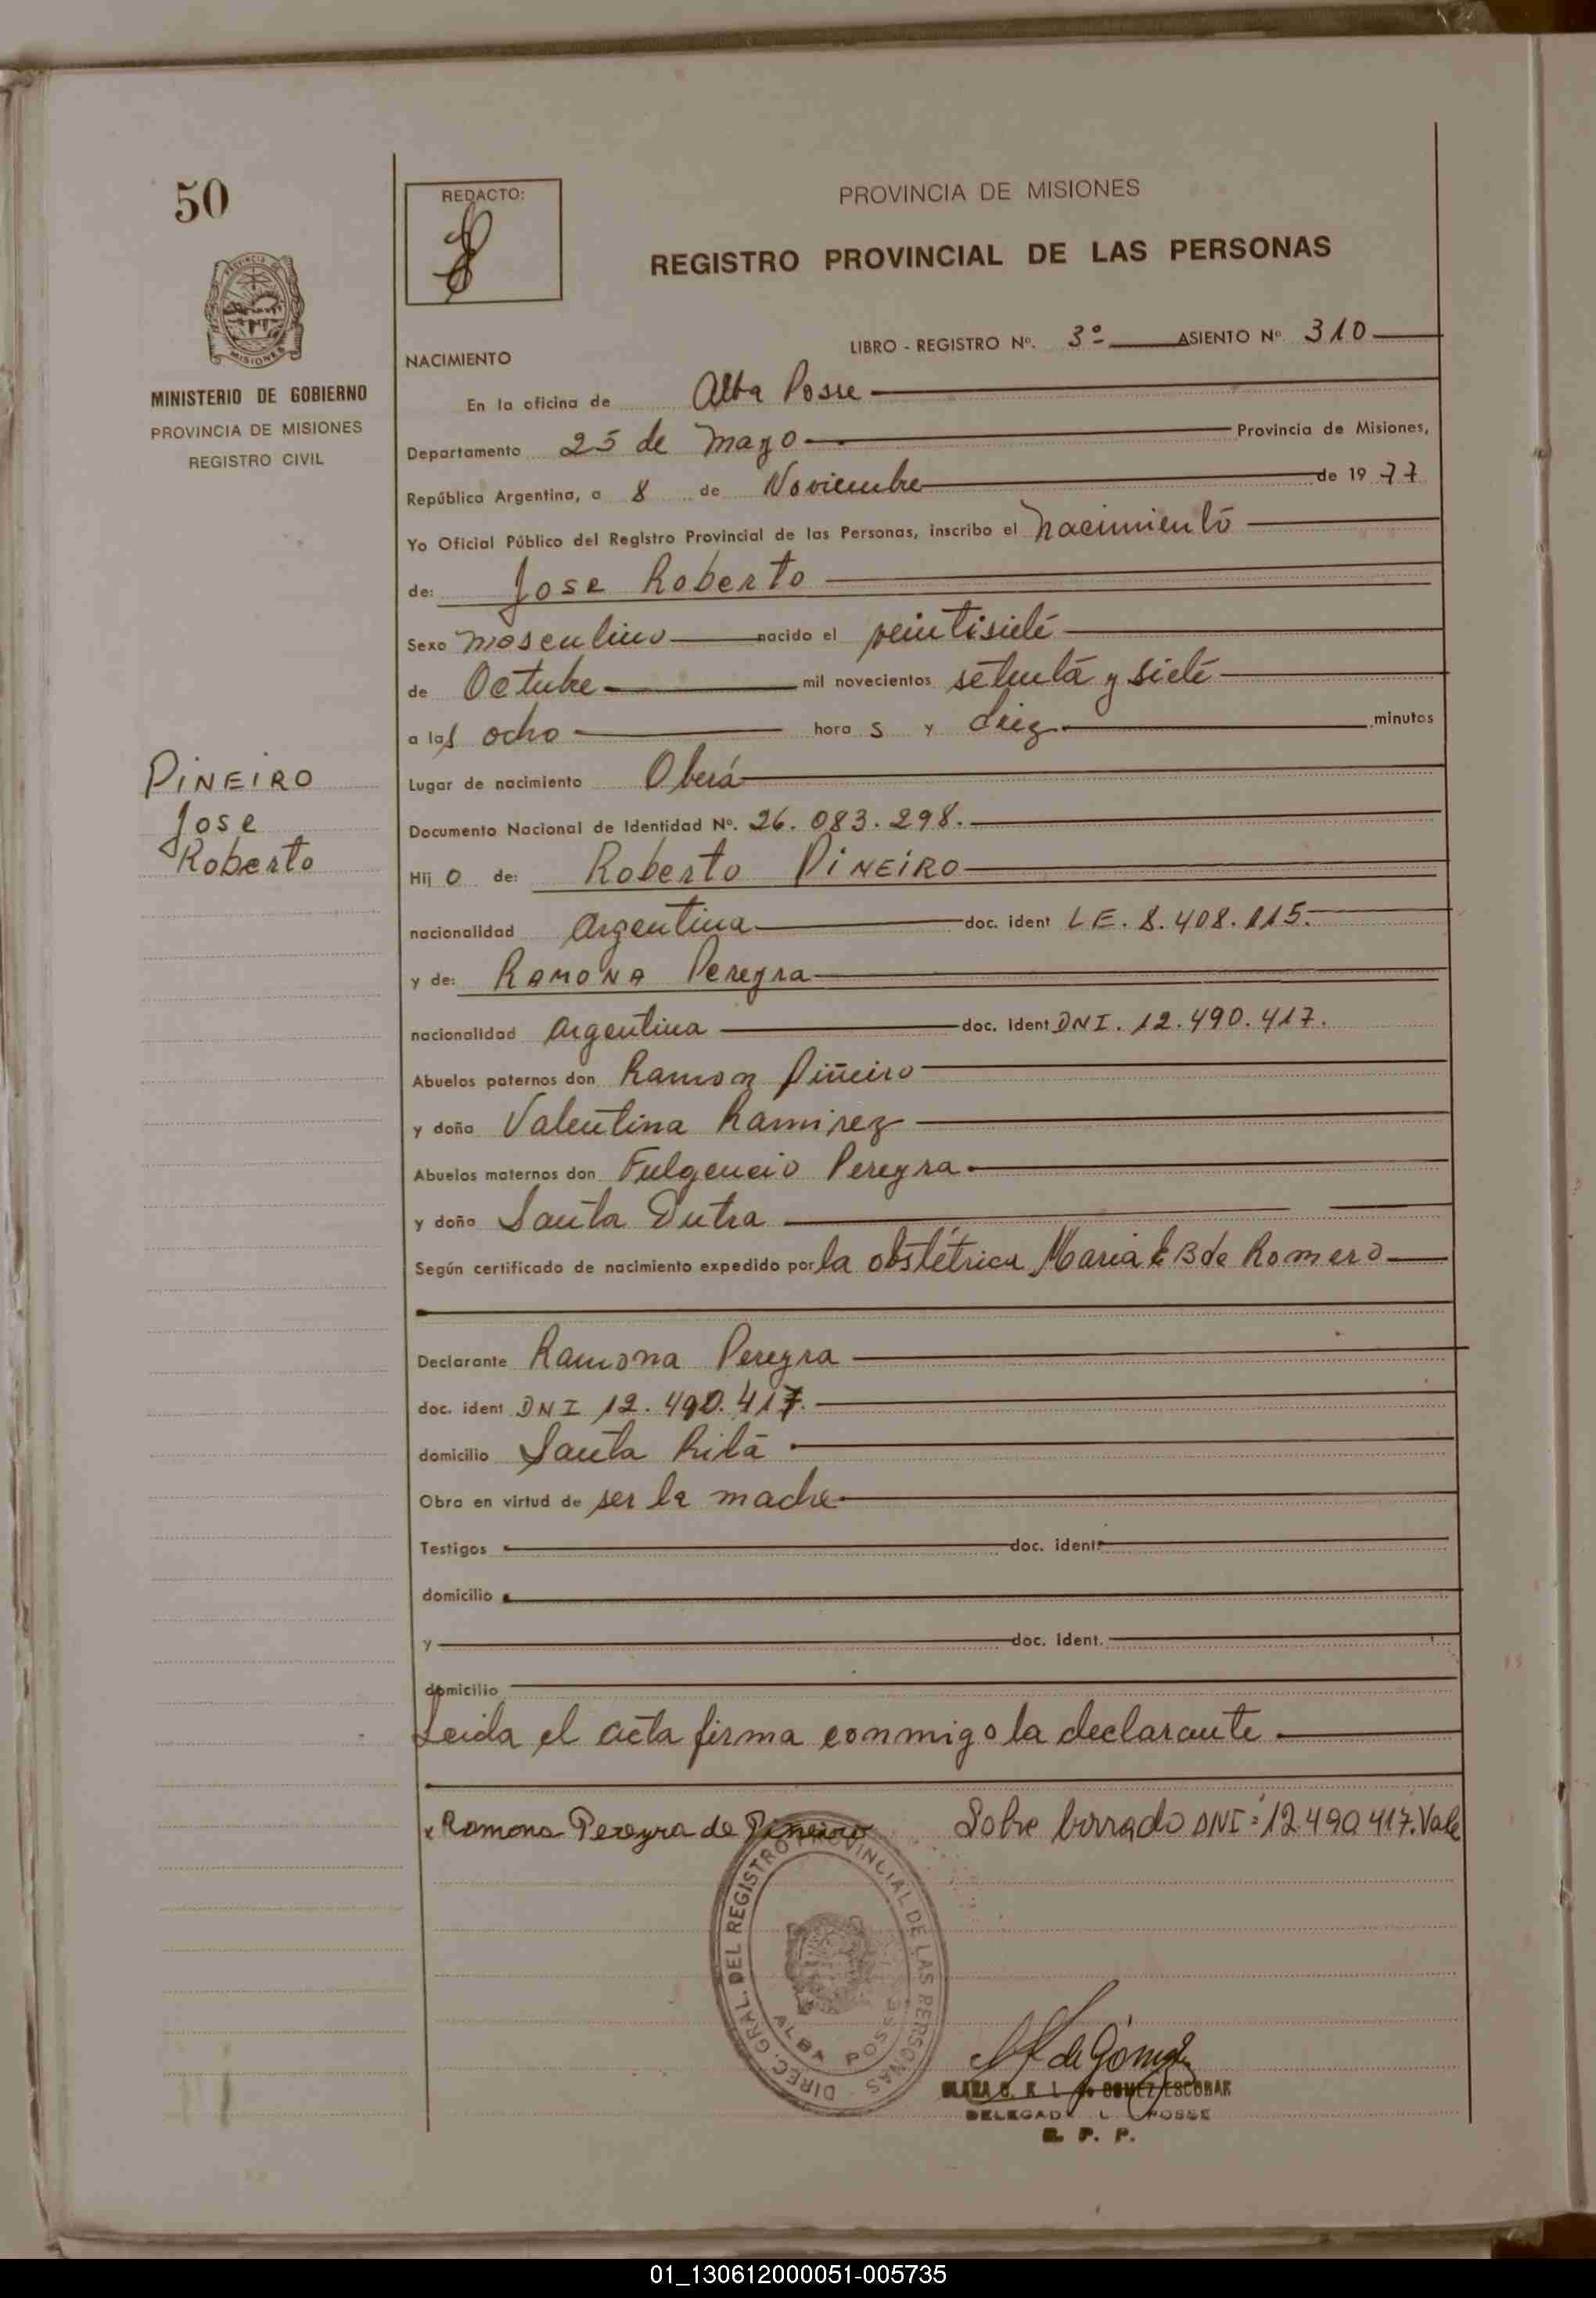 50
REDACTO:
PROVINCIA DE MISIONES
REGISTRO PROVINCIAL DE LAS PERSONAS
PROVINCIA DE MISIONES
MINISTERIO DE GOBIERNO
PROVINCIA DE MISIONES
REGISTRO CIVIL
LIBRO - REGISTRO Nº. 3º ASIENTO Nº 310
NACIMIENTO
En la oficina de Alba Posse
Departamento 25 de Mayo Provincia de Misiones,
República Argentina, a 8 de Noviembre de 1977
Yo Oficial Público del Registro Provincial de las Personas, inscribo el nacimiento
de: Jose Roberto
Sexo masculino nacido el veintisiete
de Octubre mil novecientos setenta y siete
a las ocho hora s y diez minutos
PiNEIRO
Jose
Roberto
Lugar de nacimiento Oberá
Documento Nacional de Identidad Nº. 26.083.298.
Hij o de: Roberto PiNEiRO
nacionalidad Argentina doc. ident LE. 8.408.115.
y de: RAMONA Pereyra
nacionalidad Argentina doc. ident DNI. 12.490.417.
Abuelos paternos don Ramon Piñeiro
y doña Valentina Ramirez
Abuelos maternos don Fulgencio Pereyra
y doña Santa Dutra
Según certificado de nacimiento expedido por la obstétrica Maria E B de Romero
Declarante Ramona Pereyra
doc. ident DNI 12.490.417.
domicilio Santa Rita
Obra en virtud de ser la madre
Testigos doc. ident
domicilio
y doc. ident.
domicilio
Leida el acta firma conmigo la declarante
x Ramona Pereyra de Pineiro Sobre borrado DNI: 12.490.417. Vale
DIREC. GRAL. DEL REGISTRO PROVINCIAL DE LAS PERSONAS
ALBA POSSE
de Gómez
GOMEZ ESCOBAR
POSSE
R. P. P.
01_130612000051-005735